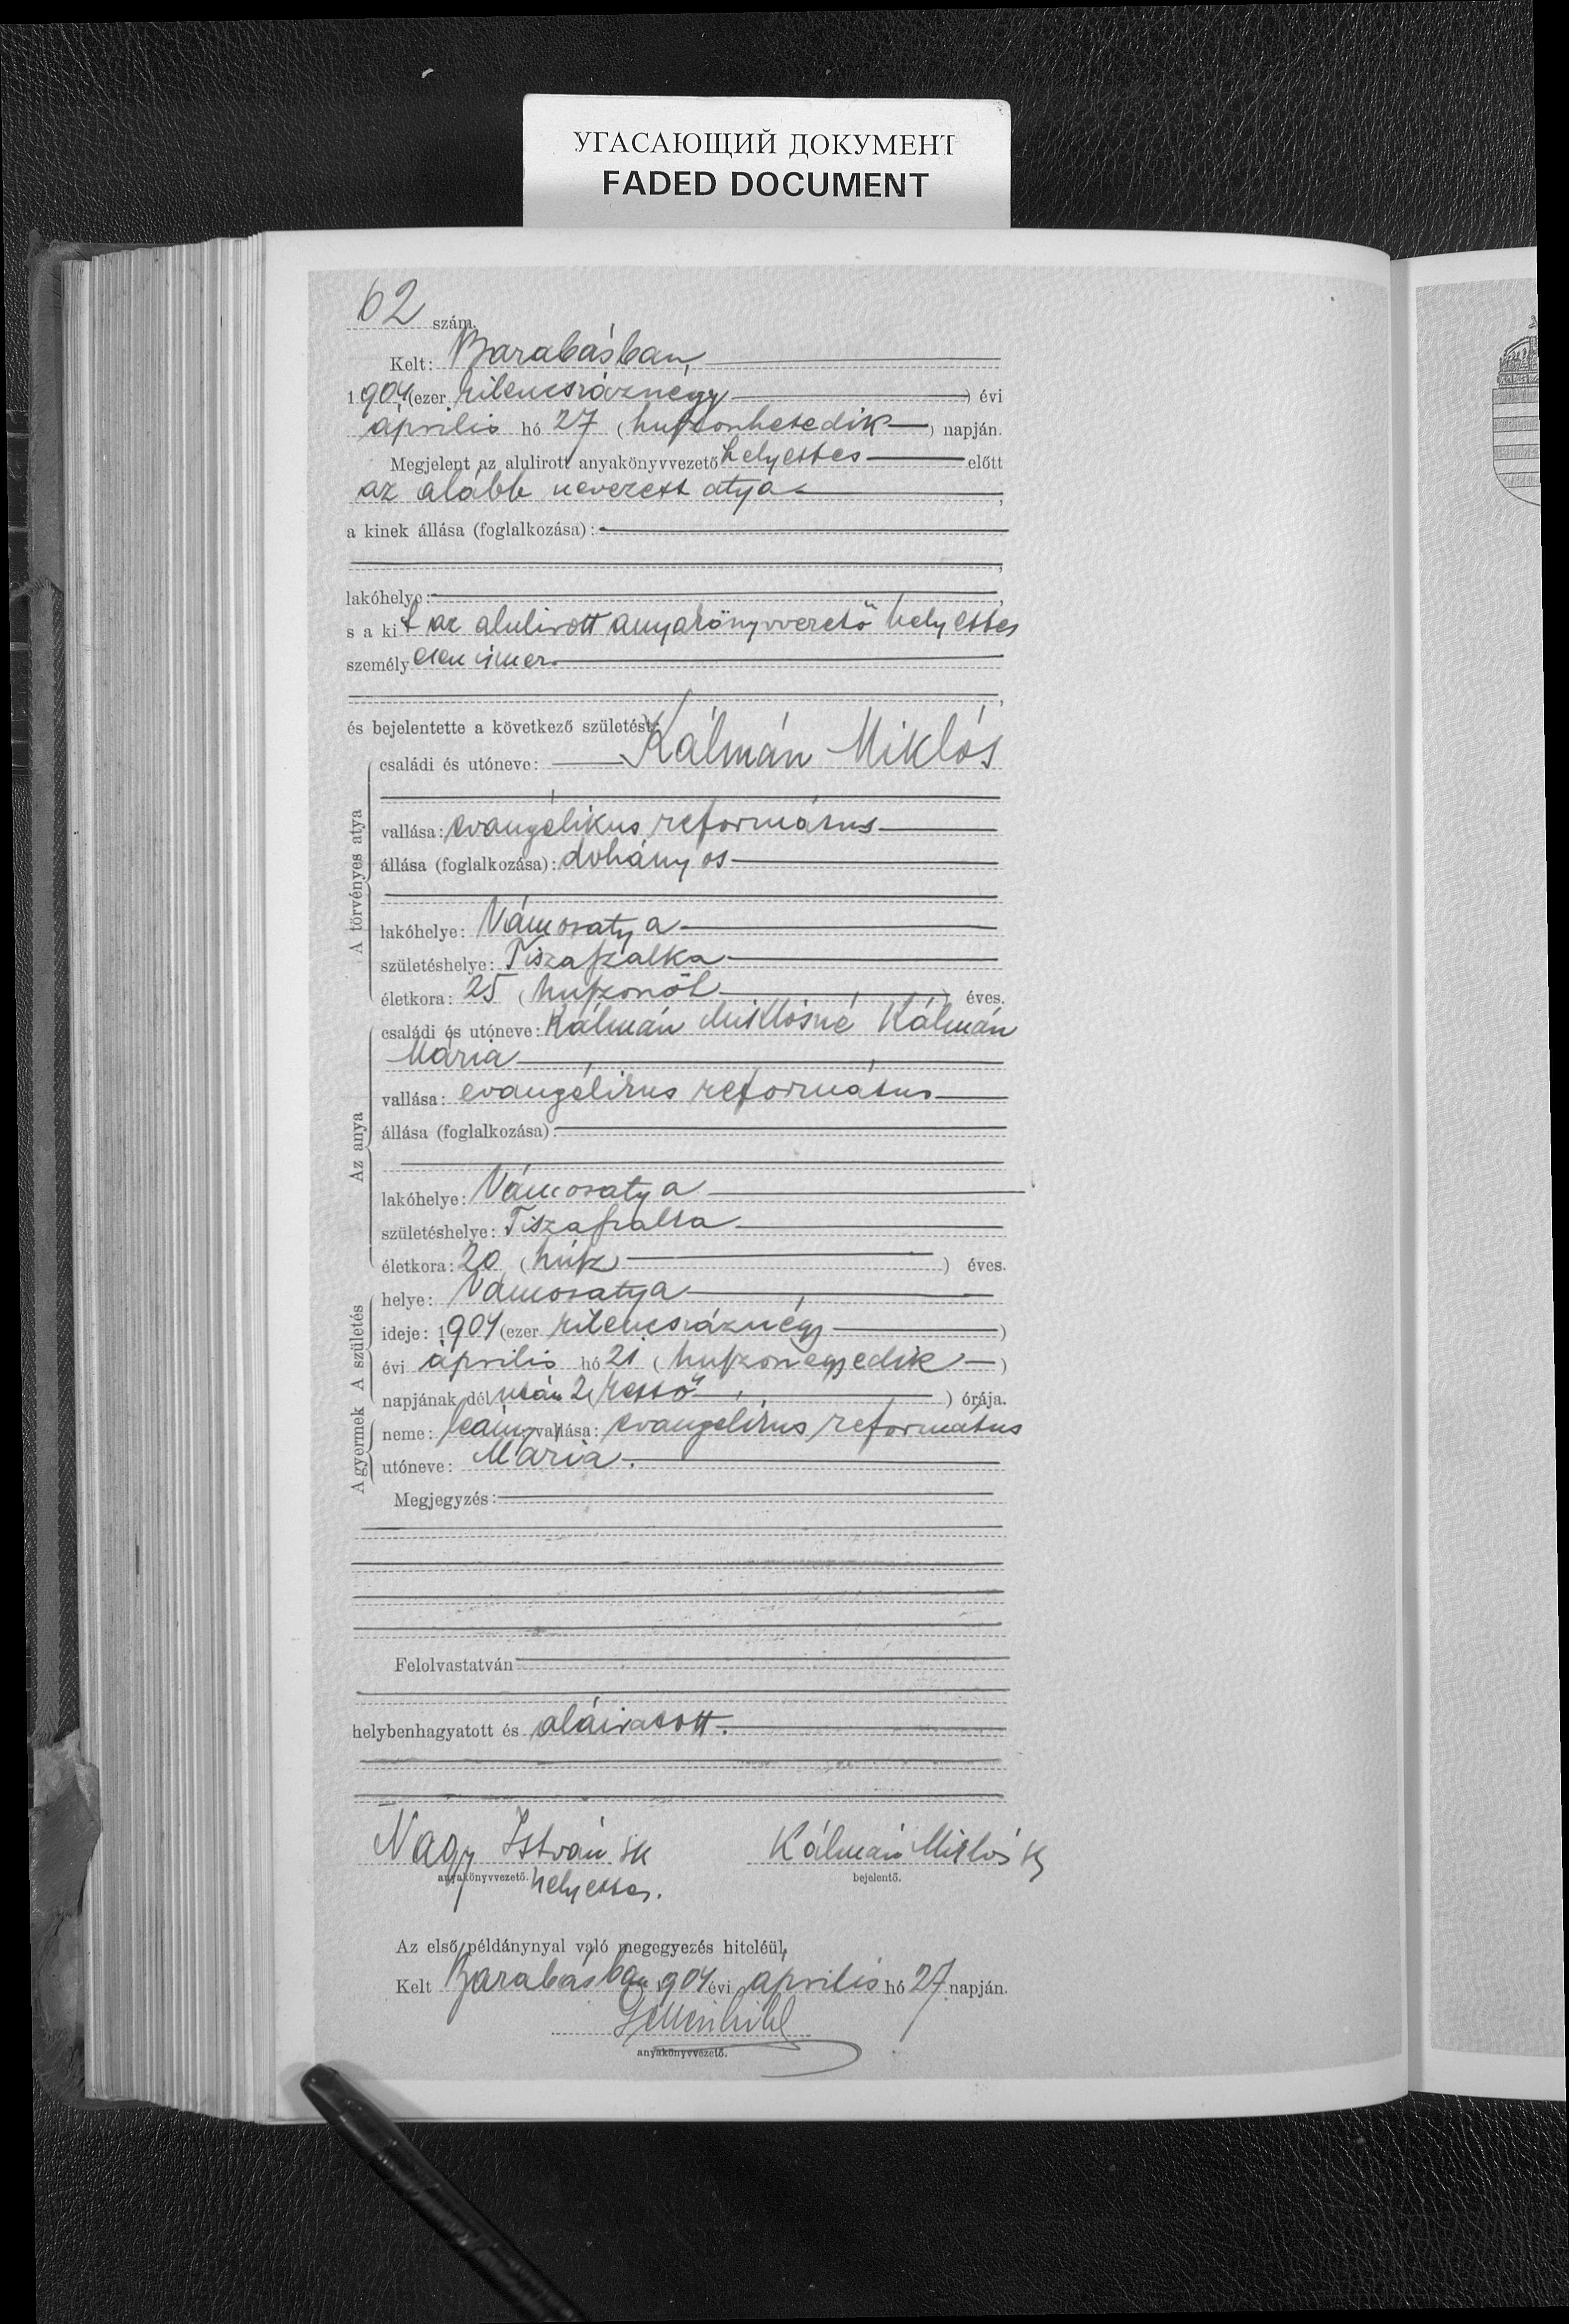 УГАСАЮЩИЙ ДОКУМЕНТ
FADED DOCUMENT
62 szám.
Kelt: Barabásban,
1904 (ezer kilencszáznégy) évi
április hó 27 (huszonhetedik) napján.
Megjelent az alulirott anyakönyvvezető helyettes előtt
az alább nevezett atya,
a kinek állása (foglalkozása):
lakóhelye:
s a kit az alulirott anyakönyvvezető helyettes
személyesen ismer.
és bejelentette a következő születést:
A törvényes atya
családi és utóneve: Kálmán Miklós
vallása: evangélikus református
állása (foglalkozása): dohányos
lakóhelye: Vámosatya
születéshelye: Tiszaszalka
életkora: 25 (huszonöt) éves.
Az anya
családi és utóneve: Kálmán Miklósné Kálmán
Mária
vallása: evangélikus református
állása (foglalkozása):
lakóhelye: Vámosatya
születéshelye: Tiszaszalka
életkora: 20 (húsz) éves.
A születés
helye: Vámosatya
ideje: 1904 (ezer kilencszáznégy)
évi április hó 21 (huszonegyedik)
napjának dél után 2 (kettő) órája.
A gyermek
neme: leány, vallása: evangelikus református
utóneve: Mária.
Megjegyzés:
Felolvastatván
helybenhagyatott és aláiratott.
Nagy István sk Kálmán Miklós sk
anyakönyvvezető. helyettes. bejelentő.
Az első példánynyal való megegyezés hiteléül,
Kelt Barabásban 1904 évi április hó 27 napján.
anyakönyvvezető.